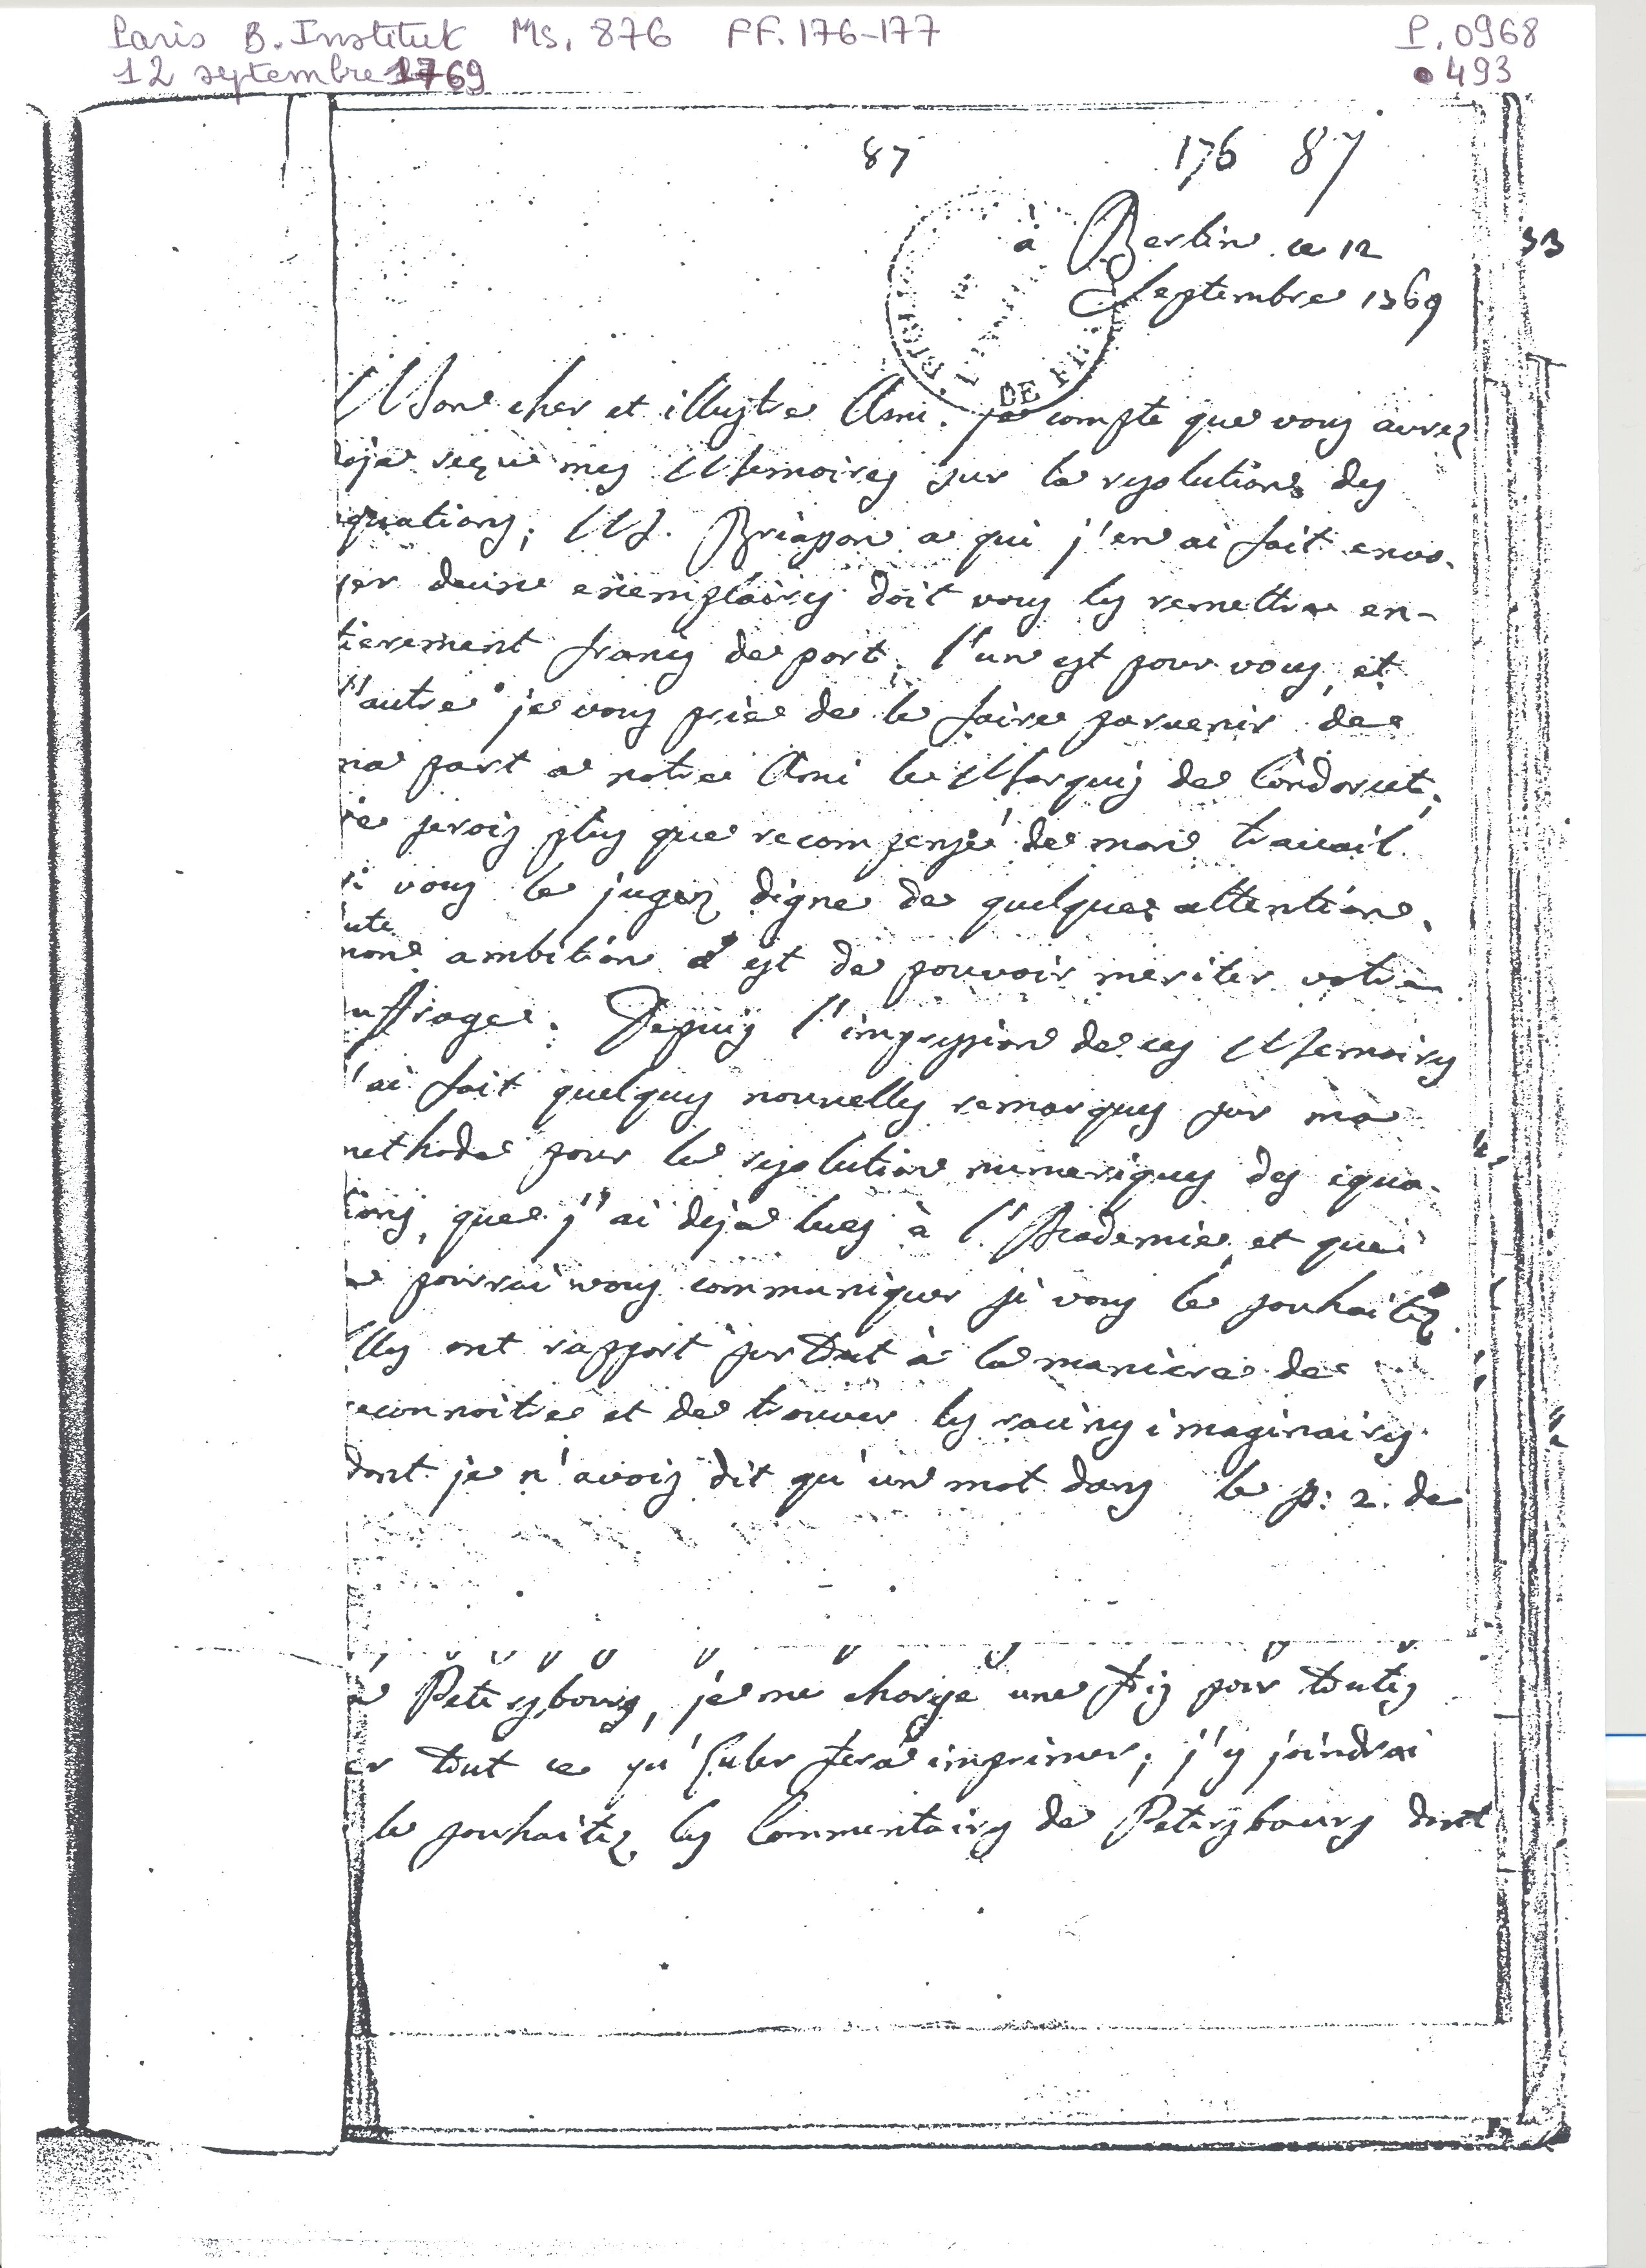 Paris B. Institut Ms. 876 FF. 176-177 P. 0968
12 septembre 1769 493
87 176 87
33
à Berlin ce 12
Septembre 1769
DE FR
Mon cher et illustre Ami. je compte que vous aurez
deja reçu mes Memoires sur la resolution des
equations; M. Briasson a qui j'en ai fait envo-
yer deux exemplaires doit vous les remettre en-
tierement francs de port; l'un est pour vous, et
l'autre je vous prie de le faire parvenir de
ma part a notre Ami le Marquis de Condorcet;
je serois plus que recompensé de mon travail
si vous le jugez digne de quelque attention.
ute
mon ambition est de pouvoir meriter votre
suffrage. Depuis l'impression de ces Memoires
j'ai fait quelques nouvelles remarques sur ma
methode pour la resolution numerique des equa-
tions, que j'ai deja lues à l'Academie, et que
je pourrai vous communiquer si vous le souhaitez
elles ont rapport sur tout à la maniere de
reconnoitre et de trouver les racines imaginaires
dont je n'avois dit qu'un mot dans le p: 2. de
a Petersbourg, je me charge une fois pour toutes
er tout ce qu'Euler fera imprimer; j'y joindrai
le souhaitez les Commentaires de Petersbourg dont